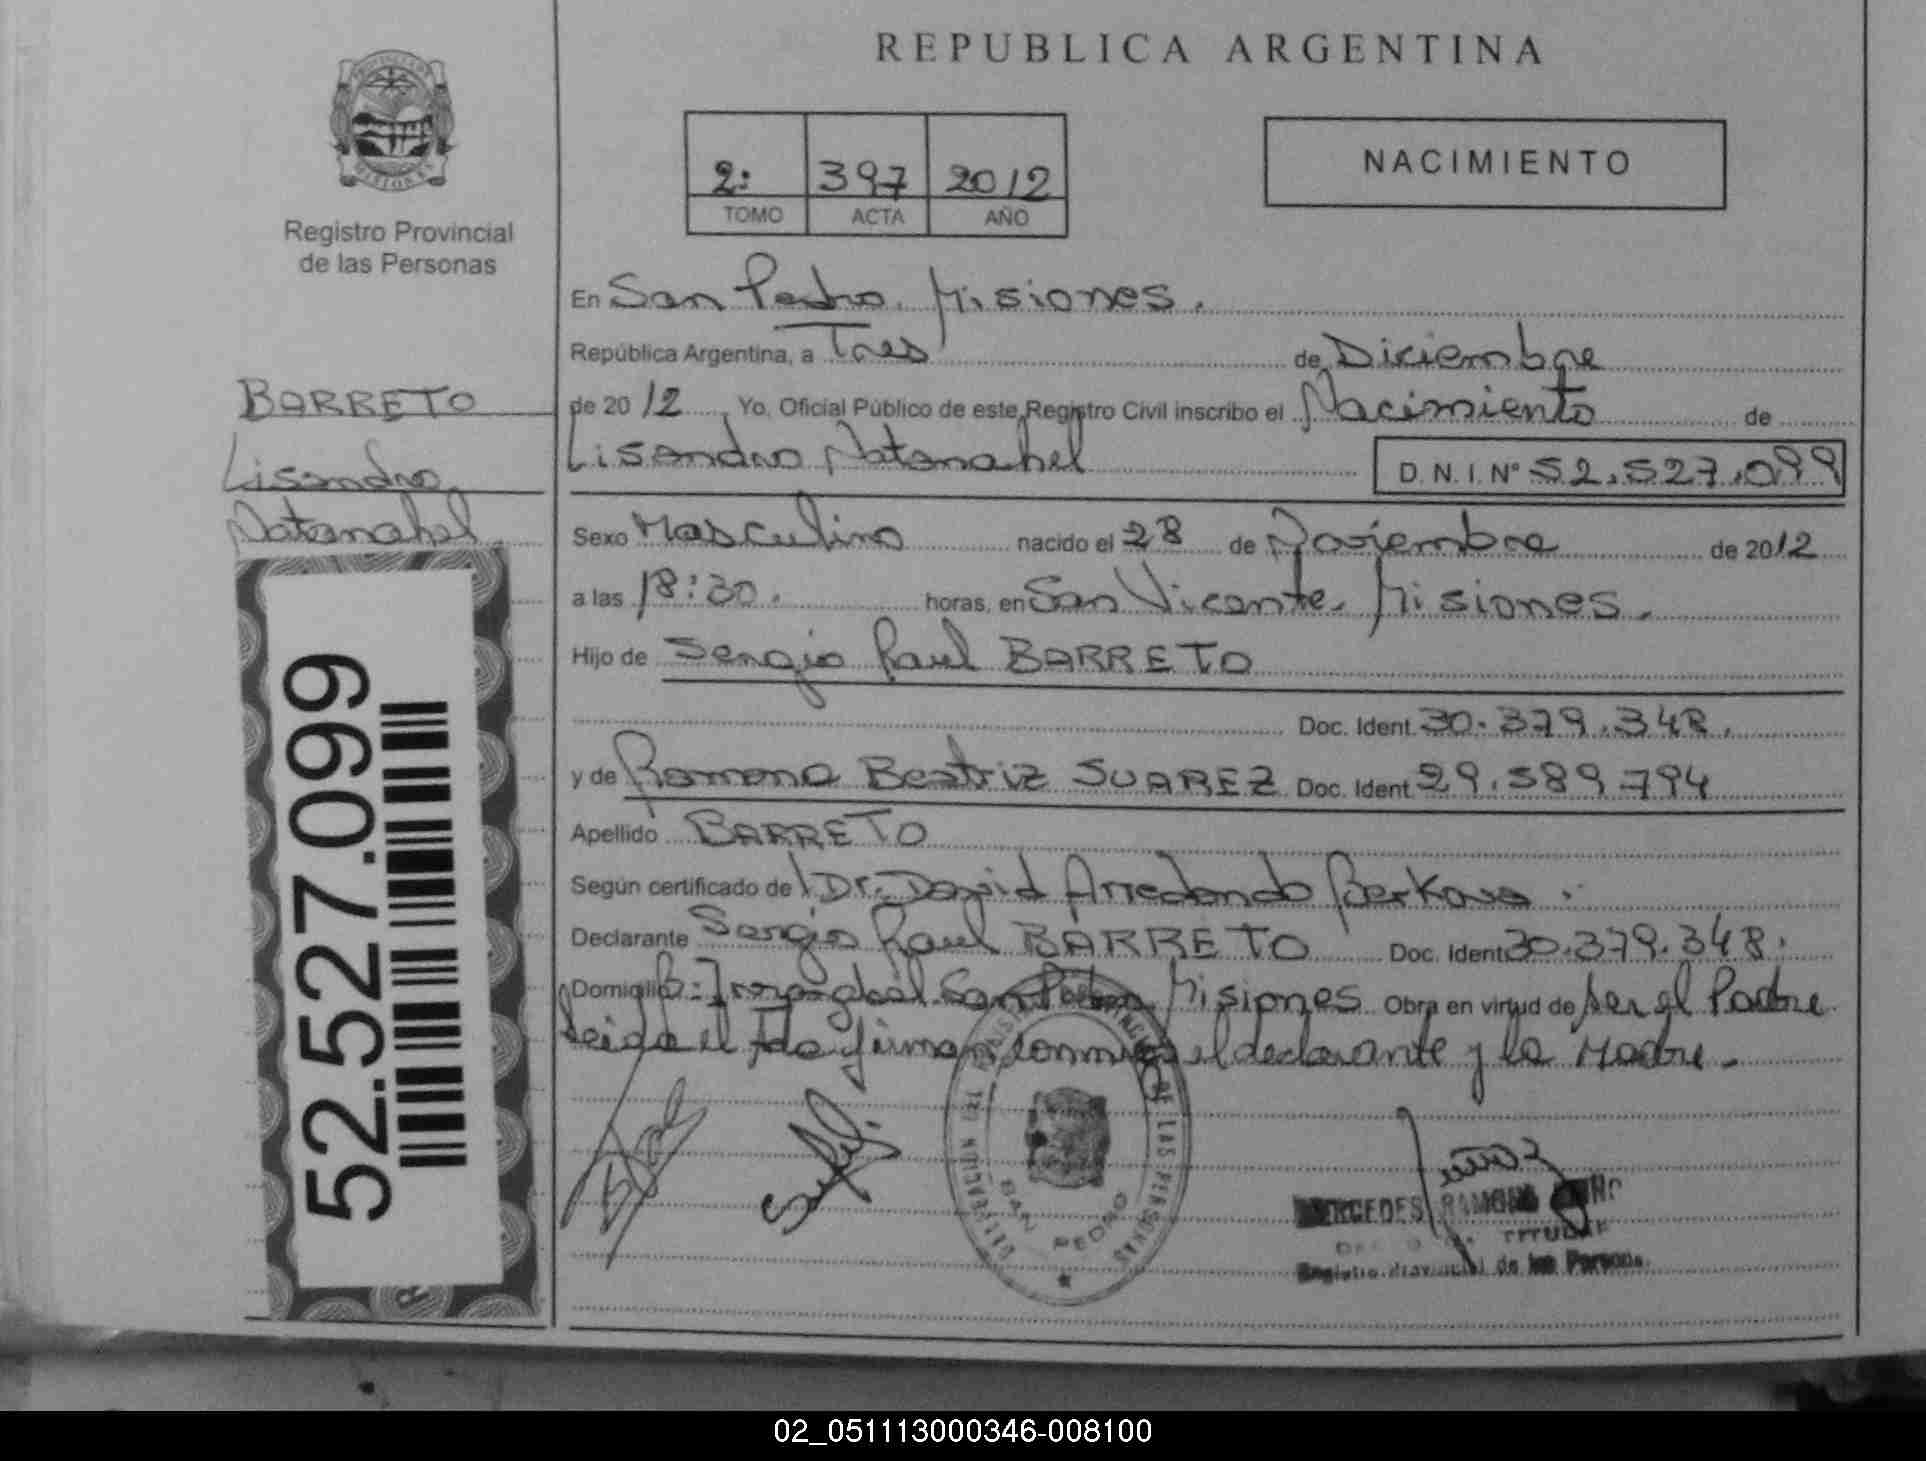 REPUBLICA ARGENTINA
PROVINCIA DE MISIONES
Registro Provincial
de las Personas
2: 397 2012
TOMO ACTA AÑO
NACIMIENTO
BARRETO
Lisandro
Natanahel.
52.527.099
En San Pedro. Misiones.
República Argentina, a Tres de Diciembre
de 2012, Yo, Oficial Público de este Registro Civil inscribo el Nacimiento de
Lisandro Natanahel D.N.I. N° 52.527.099
Sexo Masculino nacido el 28 de Noviembre de 2012
a las 18:30. horas, en San Vicente. Misiones.
Hijo de Sergio Raul BARRETO
Doc. Ident. 30.379.348.
y de Ramona Beatriz SUAREZ Doc. Ident. 29.589.794
Apellido BARRETO
Según certificado de Dr. David Arredondo
Declarante Sergio Raul BARRETO Doc. Ident. 30.379.348.
Domicilio San Pedro, Misiones Obra en virtud de ser el Padre
firman conmigo el declarante y la Madre.
DELEGACION DEL REGISTRO PROVINCIAL DE LAS PERSONAS
SAN PEDRO
MERCEDES RAMONA
TITULAR
Registro Provincial de las Personas
02_051113000346-008100